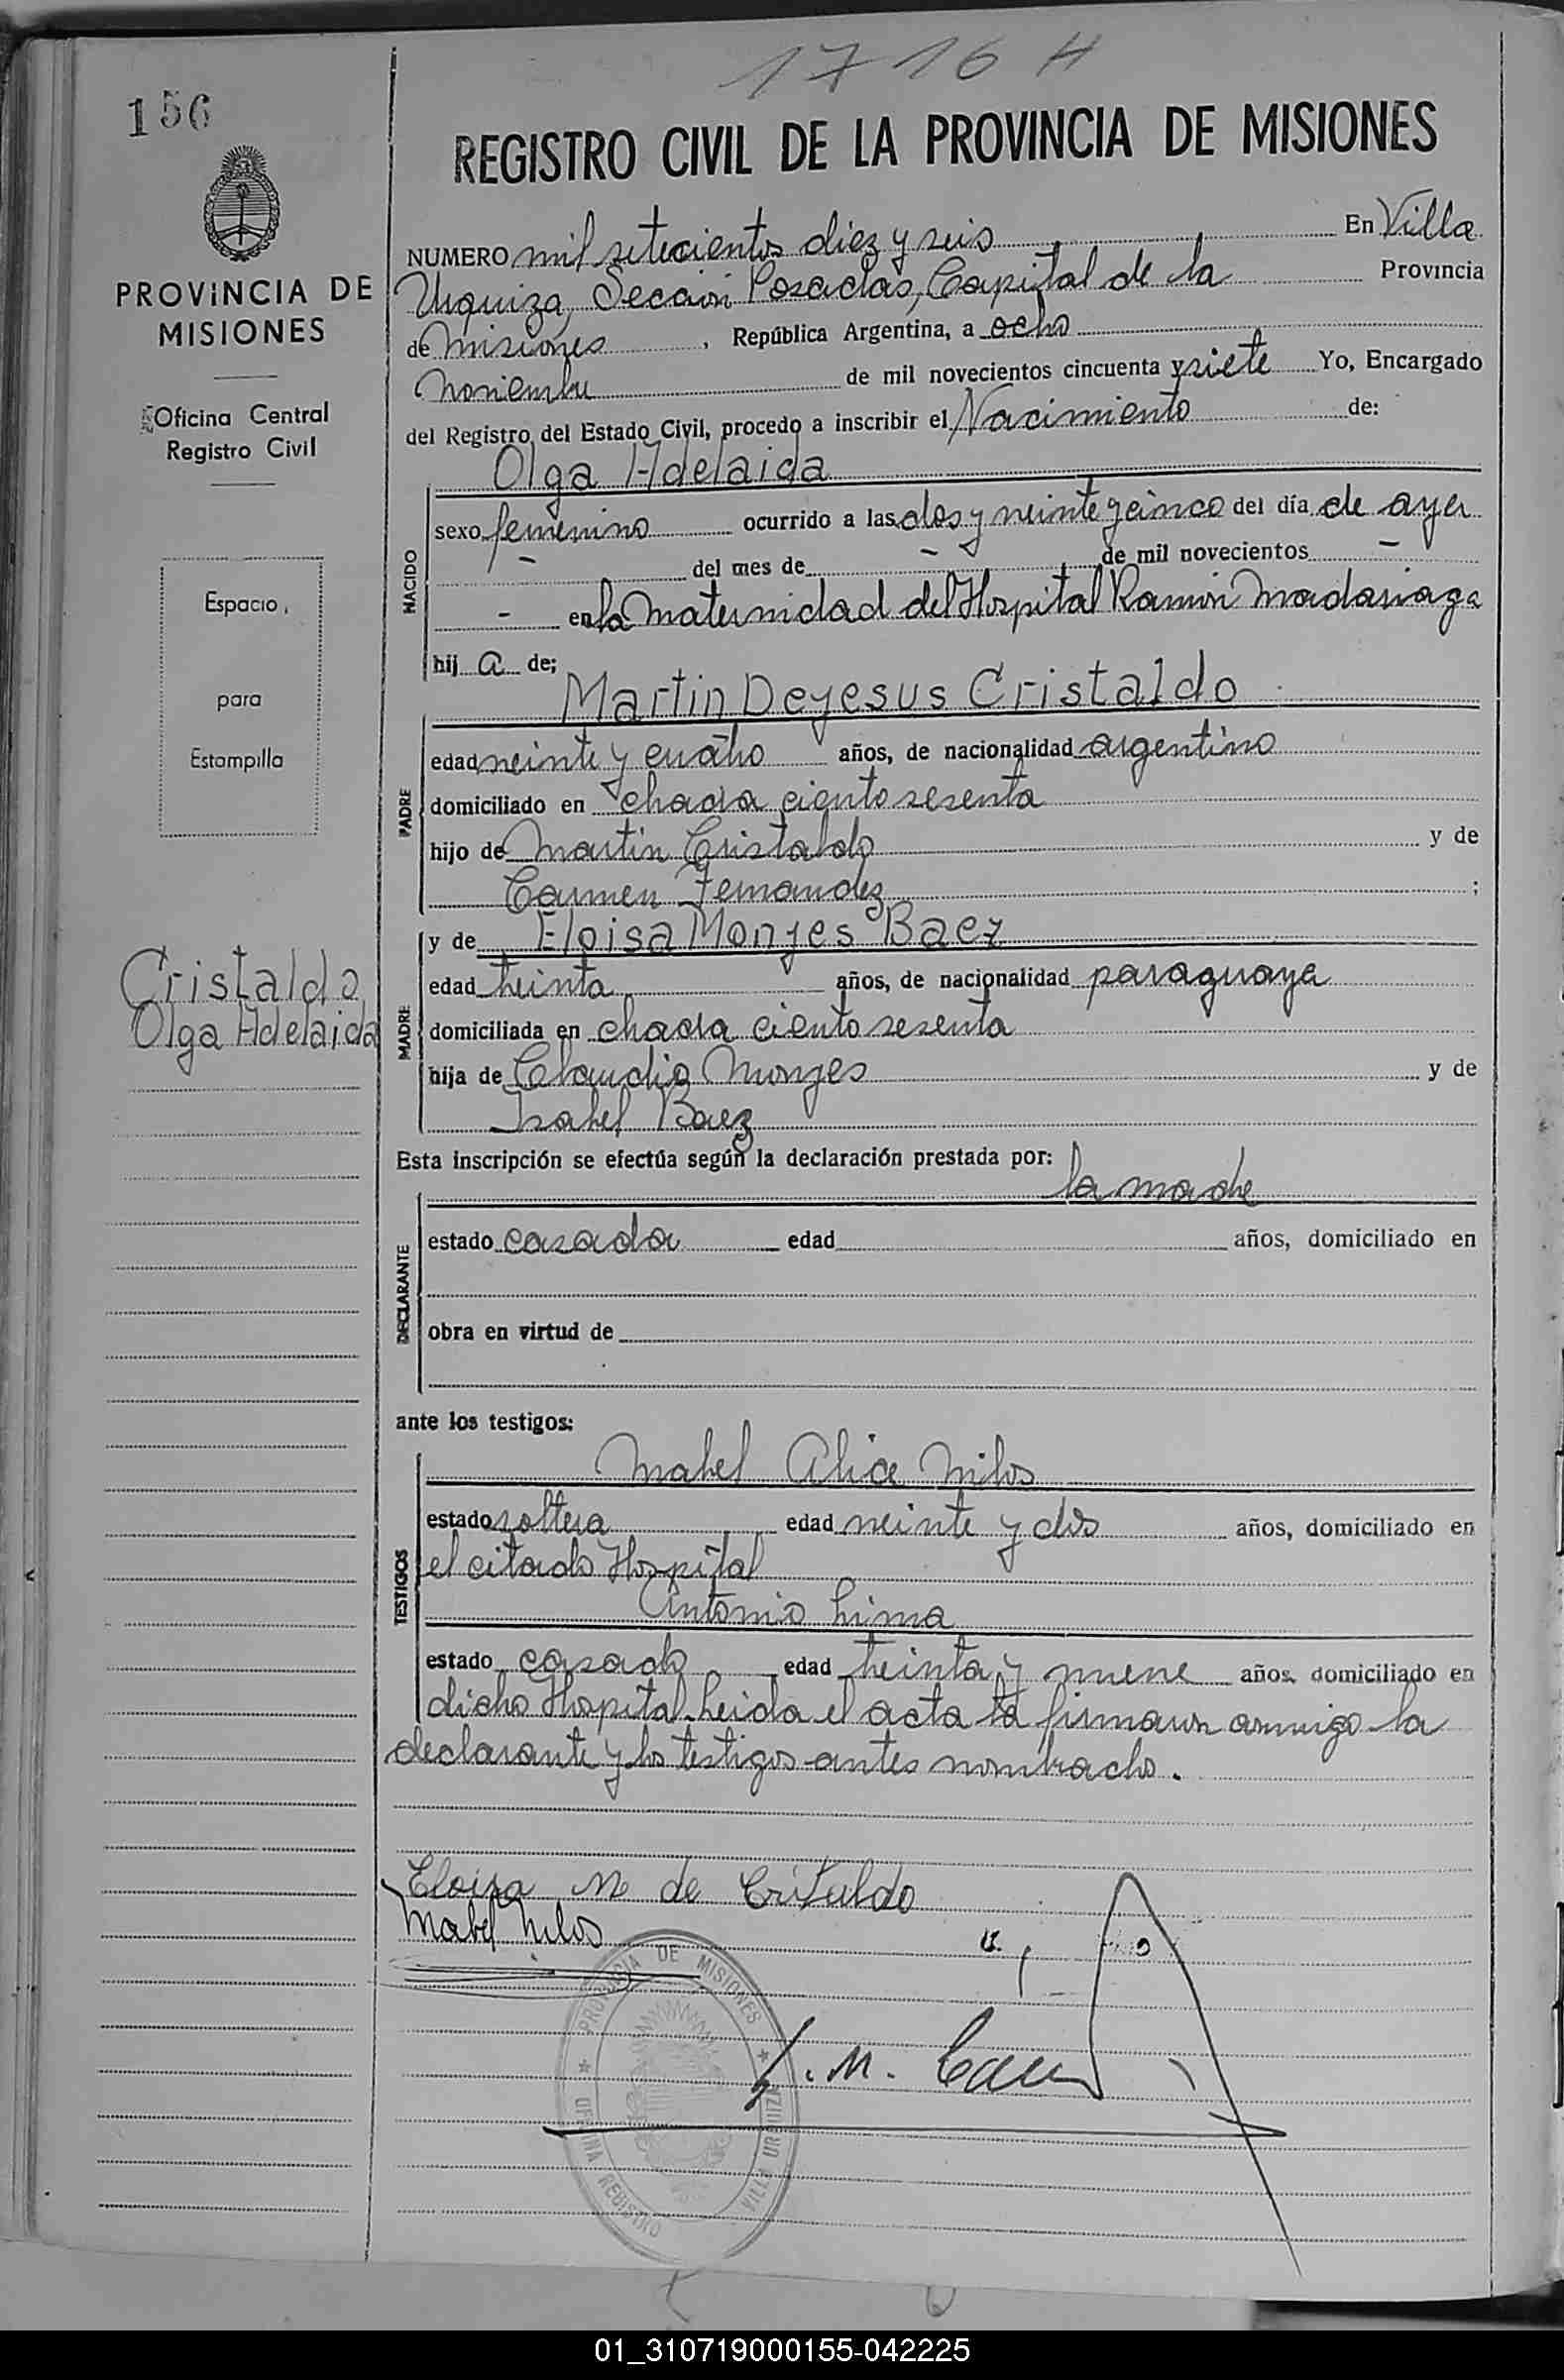 1716 H
156
REGISTRO CIVIL DE LA PROVINCIA DE MISIONES
PROVINCIA DE
MISIONES
Oficina Central
Registro Civil
Espacio
para
Estampilla
Cristaldo
Olga Adelaida
NUMERO mil setecientos diez y seis En Villa
Urquiza, Sección Posadas, Capital de la Provincia
de Misiones, República Argentina, a ocho
Noviembre de mil novecientos cincuenta y siete Yo, Encargado
del Registro del Estado Civil, procedo a inscribir el Nacimiento de:
Olga Adelaida
NACIDO
sexo femenino ocurrido a las dos y veinte y cinco del día de ayer
- del mes de - de mil novecientos -
- en la Maternidad del Hospital Ramón Madariaga
hij a de;
Martin Deyesus Cristaldo
PADRE
edad veinte y cuatro años, de nacionalidad argentino
domiciliado en chacra ciento sesenta
hijo de Martin Cristaldo y de
Carmen Fernandez ;
y de Eloisa Monjes Baez
MADRE
edad treinta años, de nacionalidad paraguaya
domiciliada en chacra ciento sesenta
hija de Claudio Monges y de
Isabel Baez
Esta inscripción se efectúa según la declaración prestada por:
la madre
DECLARANTE
estado casada edad años, domiciliado en
obra en virtud de
ante los testigos:
Mabel Alice Milos
TESTIGOS
estado soltera edad veinte y dos años, domiciliado en
el citado Hospital
Antonio Lima
estado casado edad treinta y nueve años, domiciliado en
dicho Hospital. Leida el acta la firmaron conmigo la
declarante y los testigos antes nombrados.
Eloisa M de Cristaldo
Mabel Milos
PROVINCIA DE MISIONES
OFICINA REGISTRO VILLA URQUIZA
01_310719000155-042225